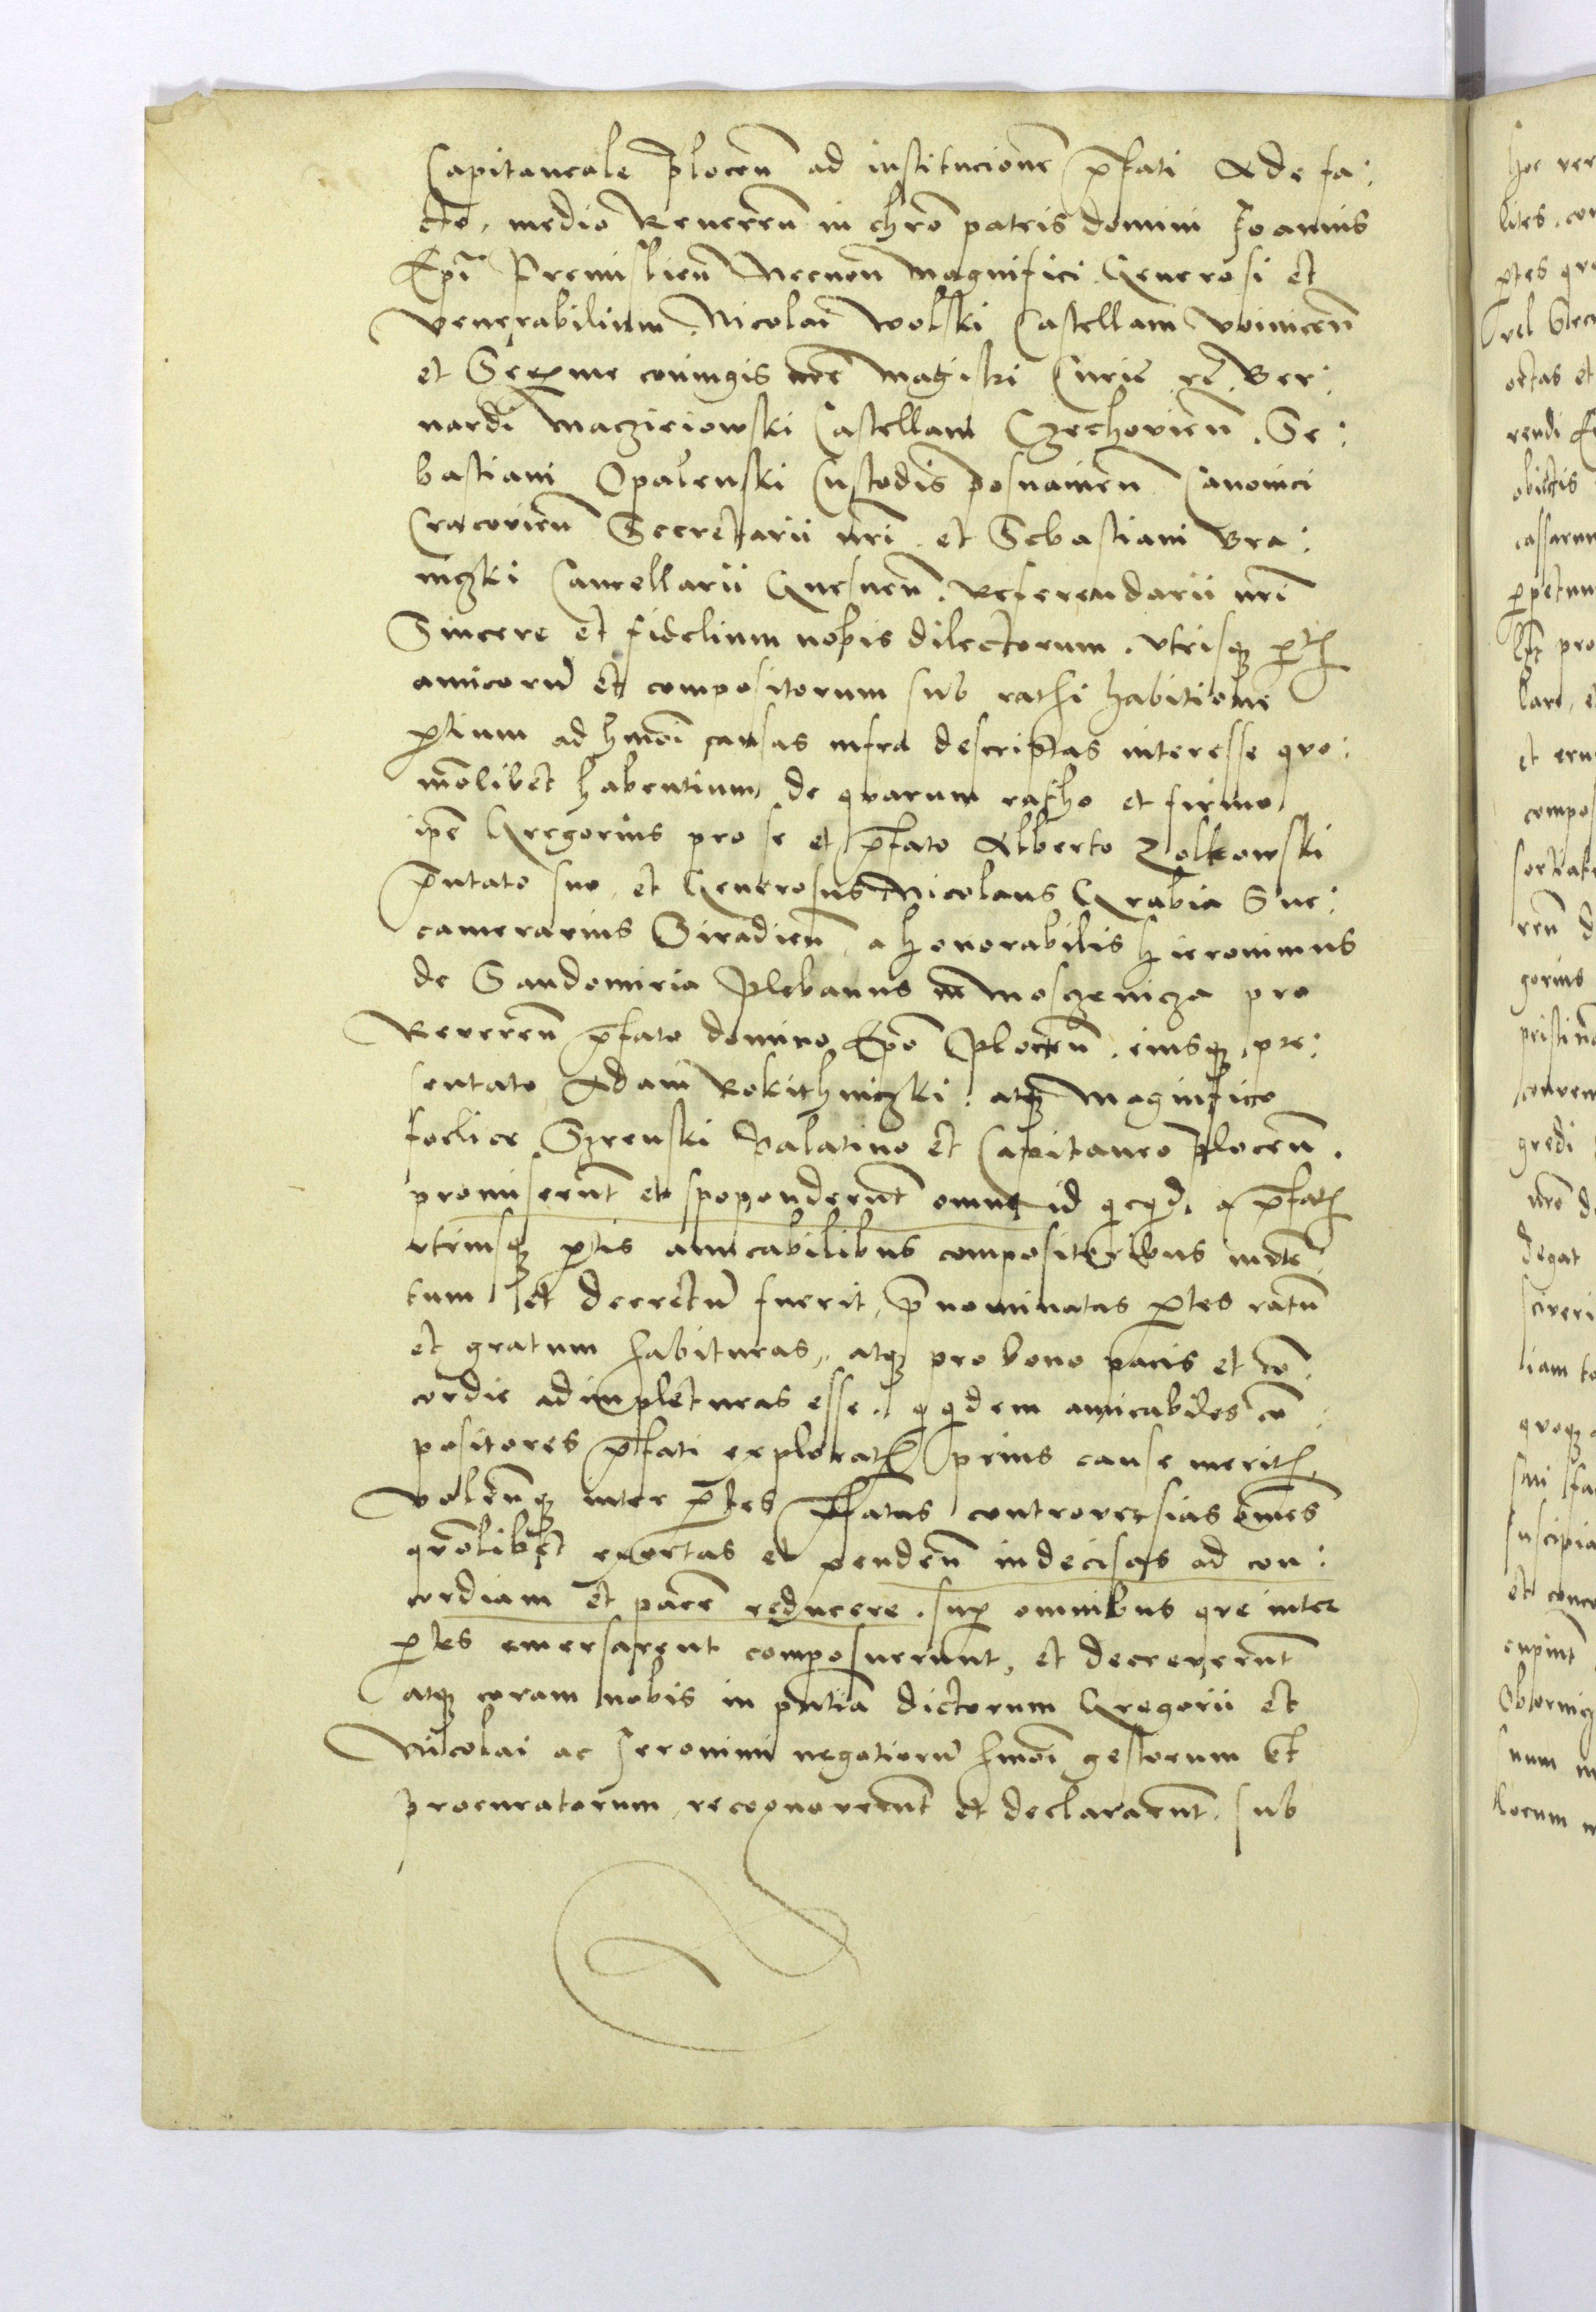 Capitaneale Plocen̄ ad institucionē p̄fati Ade fa:
cto, medio Reueren̄ in chrō patris domini Joannis
Epī Premislien̄ Necnon Magnifici Generosi et
Venerabilium Nicolai Wolski Castellani Voinicen̄
et Serme coniugis nrē Magistri Curie rc̄. Ber:
nardi Maczieiowski Castellani Czechovien̄. Se:
bastiani Opalenski Custodis Posnanien̄ Canonici
Cracovien̄ Secretarii nrī et Sebastiani Bra:
niczki Cancellarii Gnesnen̄. Referendarii nrī
Sincere et fidelium nobis dilectorum. Vtrisqȝ pt
amicorū et compositorum sub rathi habitione
ptium ad hmōi causas infra descriptas interesse quo:
mōlibet habentium de quarum ratho et firmo
ipē Gregorius pro se et p̄fato Alberto Zolkowski
p̄ntato suo et Generosus Nicolaus Grabia Suc:
camerarius Siradien̄ a honorabilis Hieronimus
de Sandomiria Plebanus in Mosczenicza pro
Reueren̄ p̄fato domino Epō Plocen̄. eiusqȝ pre:
sentato Adam Rokithniczki. atqȝ Magnifico
foelice Srzenski Palatino et Capitaneo Plocen̄.
promiserunt et spoponderunt omne id qcqd. a p̄fat
utrinsqȝ ptis amicabilibus compositoribus inven:
tum et decretū fuerit, p̄nominatas ptes ratū
et gratum habituras, atqȝ pro bono pacis et cō
cordie adimpleturas esse. q qdem amicabiles cō:
positores p̄fati explorat prius cause merit
Volen̄qȝ inter ptes p̄fatas controversias om̄es
quolibet exortas et penden̄ indecisas ad con:
cordiam et pacē reducere. sup omnibus que inter
ptes emersarent composuerunt, et decreverunt
atqȝ coram nobis in pn̄tia dictorum Gregorii et
Nicolai ac Jeronimi negotiorū hmōi gestorum et
procuratorum recognoverunt et declararunt. sub